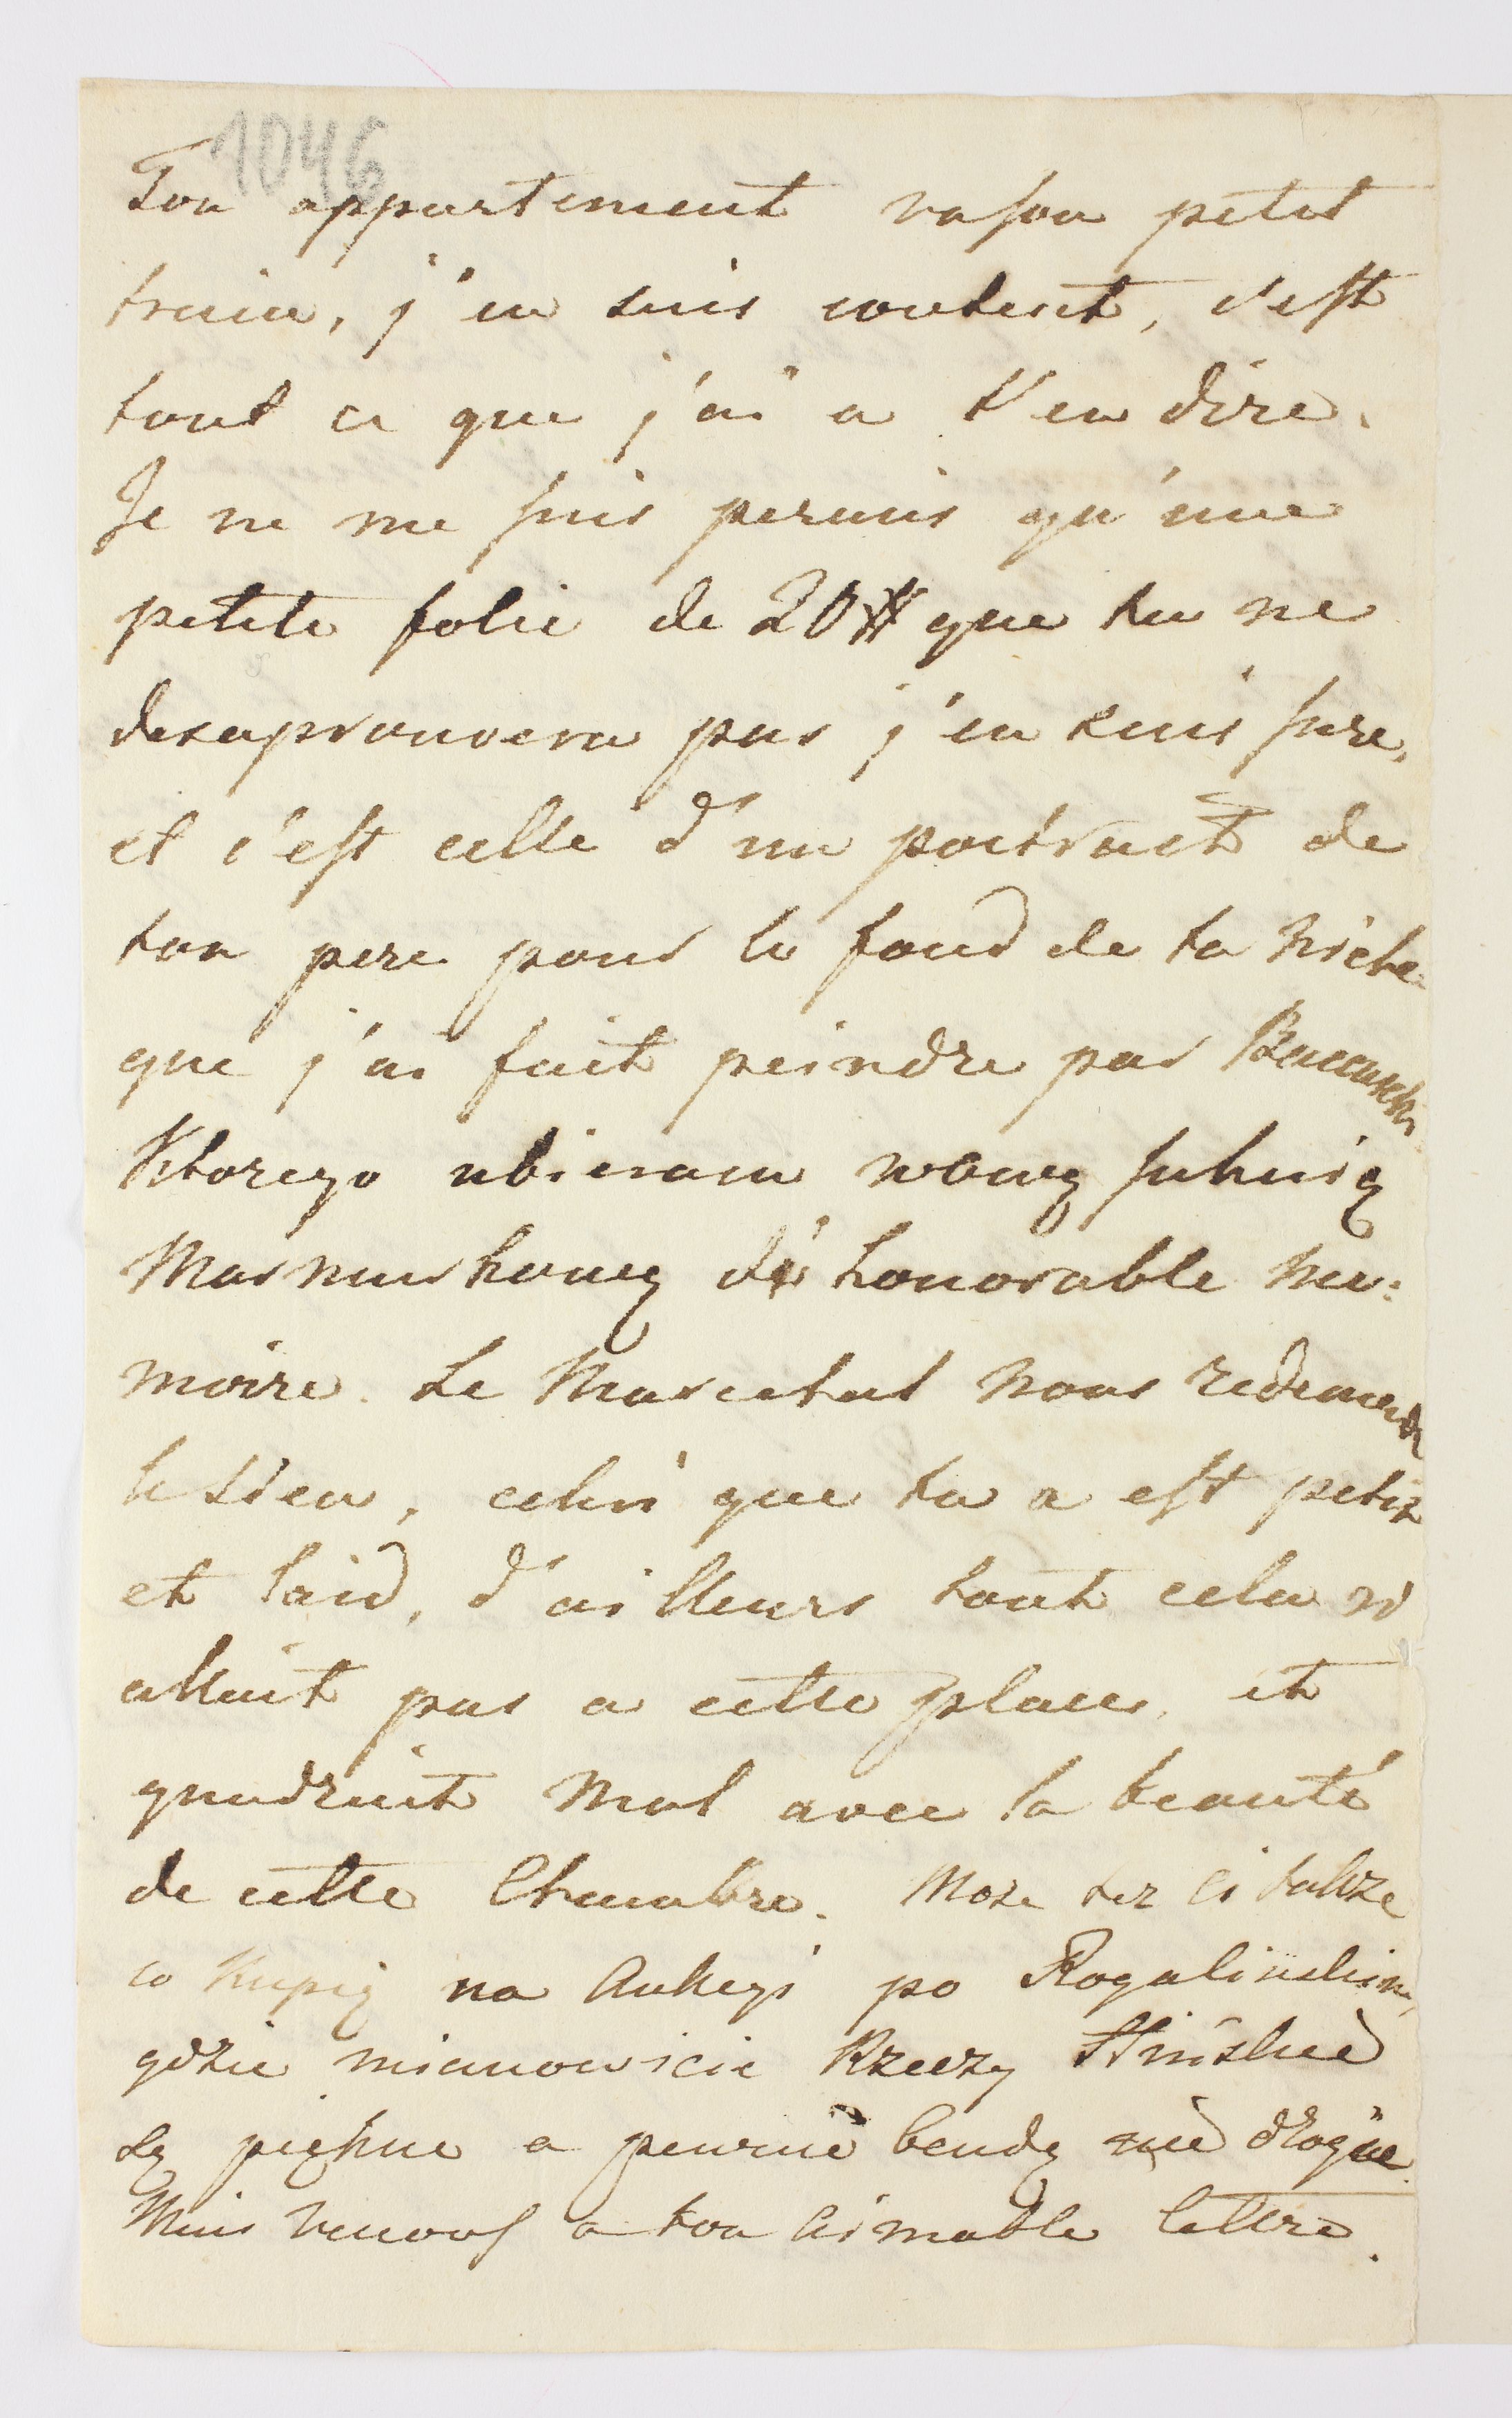 1046
Ton appartement va son petit
train, j'en suis contente, c'est
tout ce que j'ai a t'en dire.
Je ne me suis permis qu'une
petite folie de 20# que tu ne
desaprouvera pas j'en suis sure,
et c'est celle d'un portrait de
ton pere pour le fond de ta niche
que j'ai fait peindre par
Ktorego ubieram w suknią
de honorable me:
moire. Le Marechal nous redemande
le sien, celui que tu a est petit
et laid, d'ailleurs tout cela n'
allait pas a cette place, et
quadrait mal avec la beauté
de cette Chambre. Może tez Ci także
co Kupię na Aukcyi po Rogalinskim,
gdzie mianowicie Rzeczy
są piękne a pewnie bendą nie drogie.
Mais venons a ton aimable lettre.